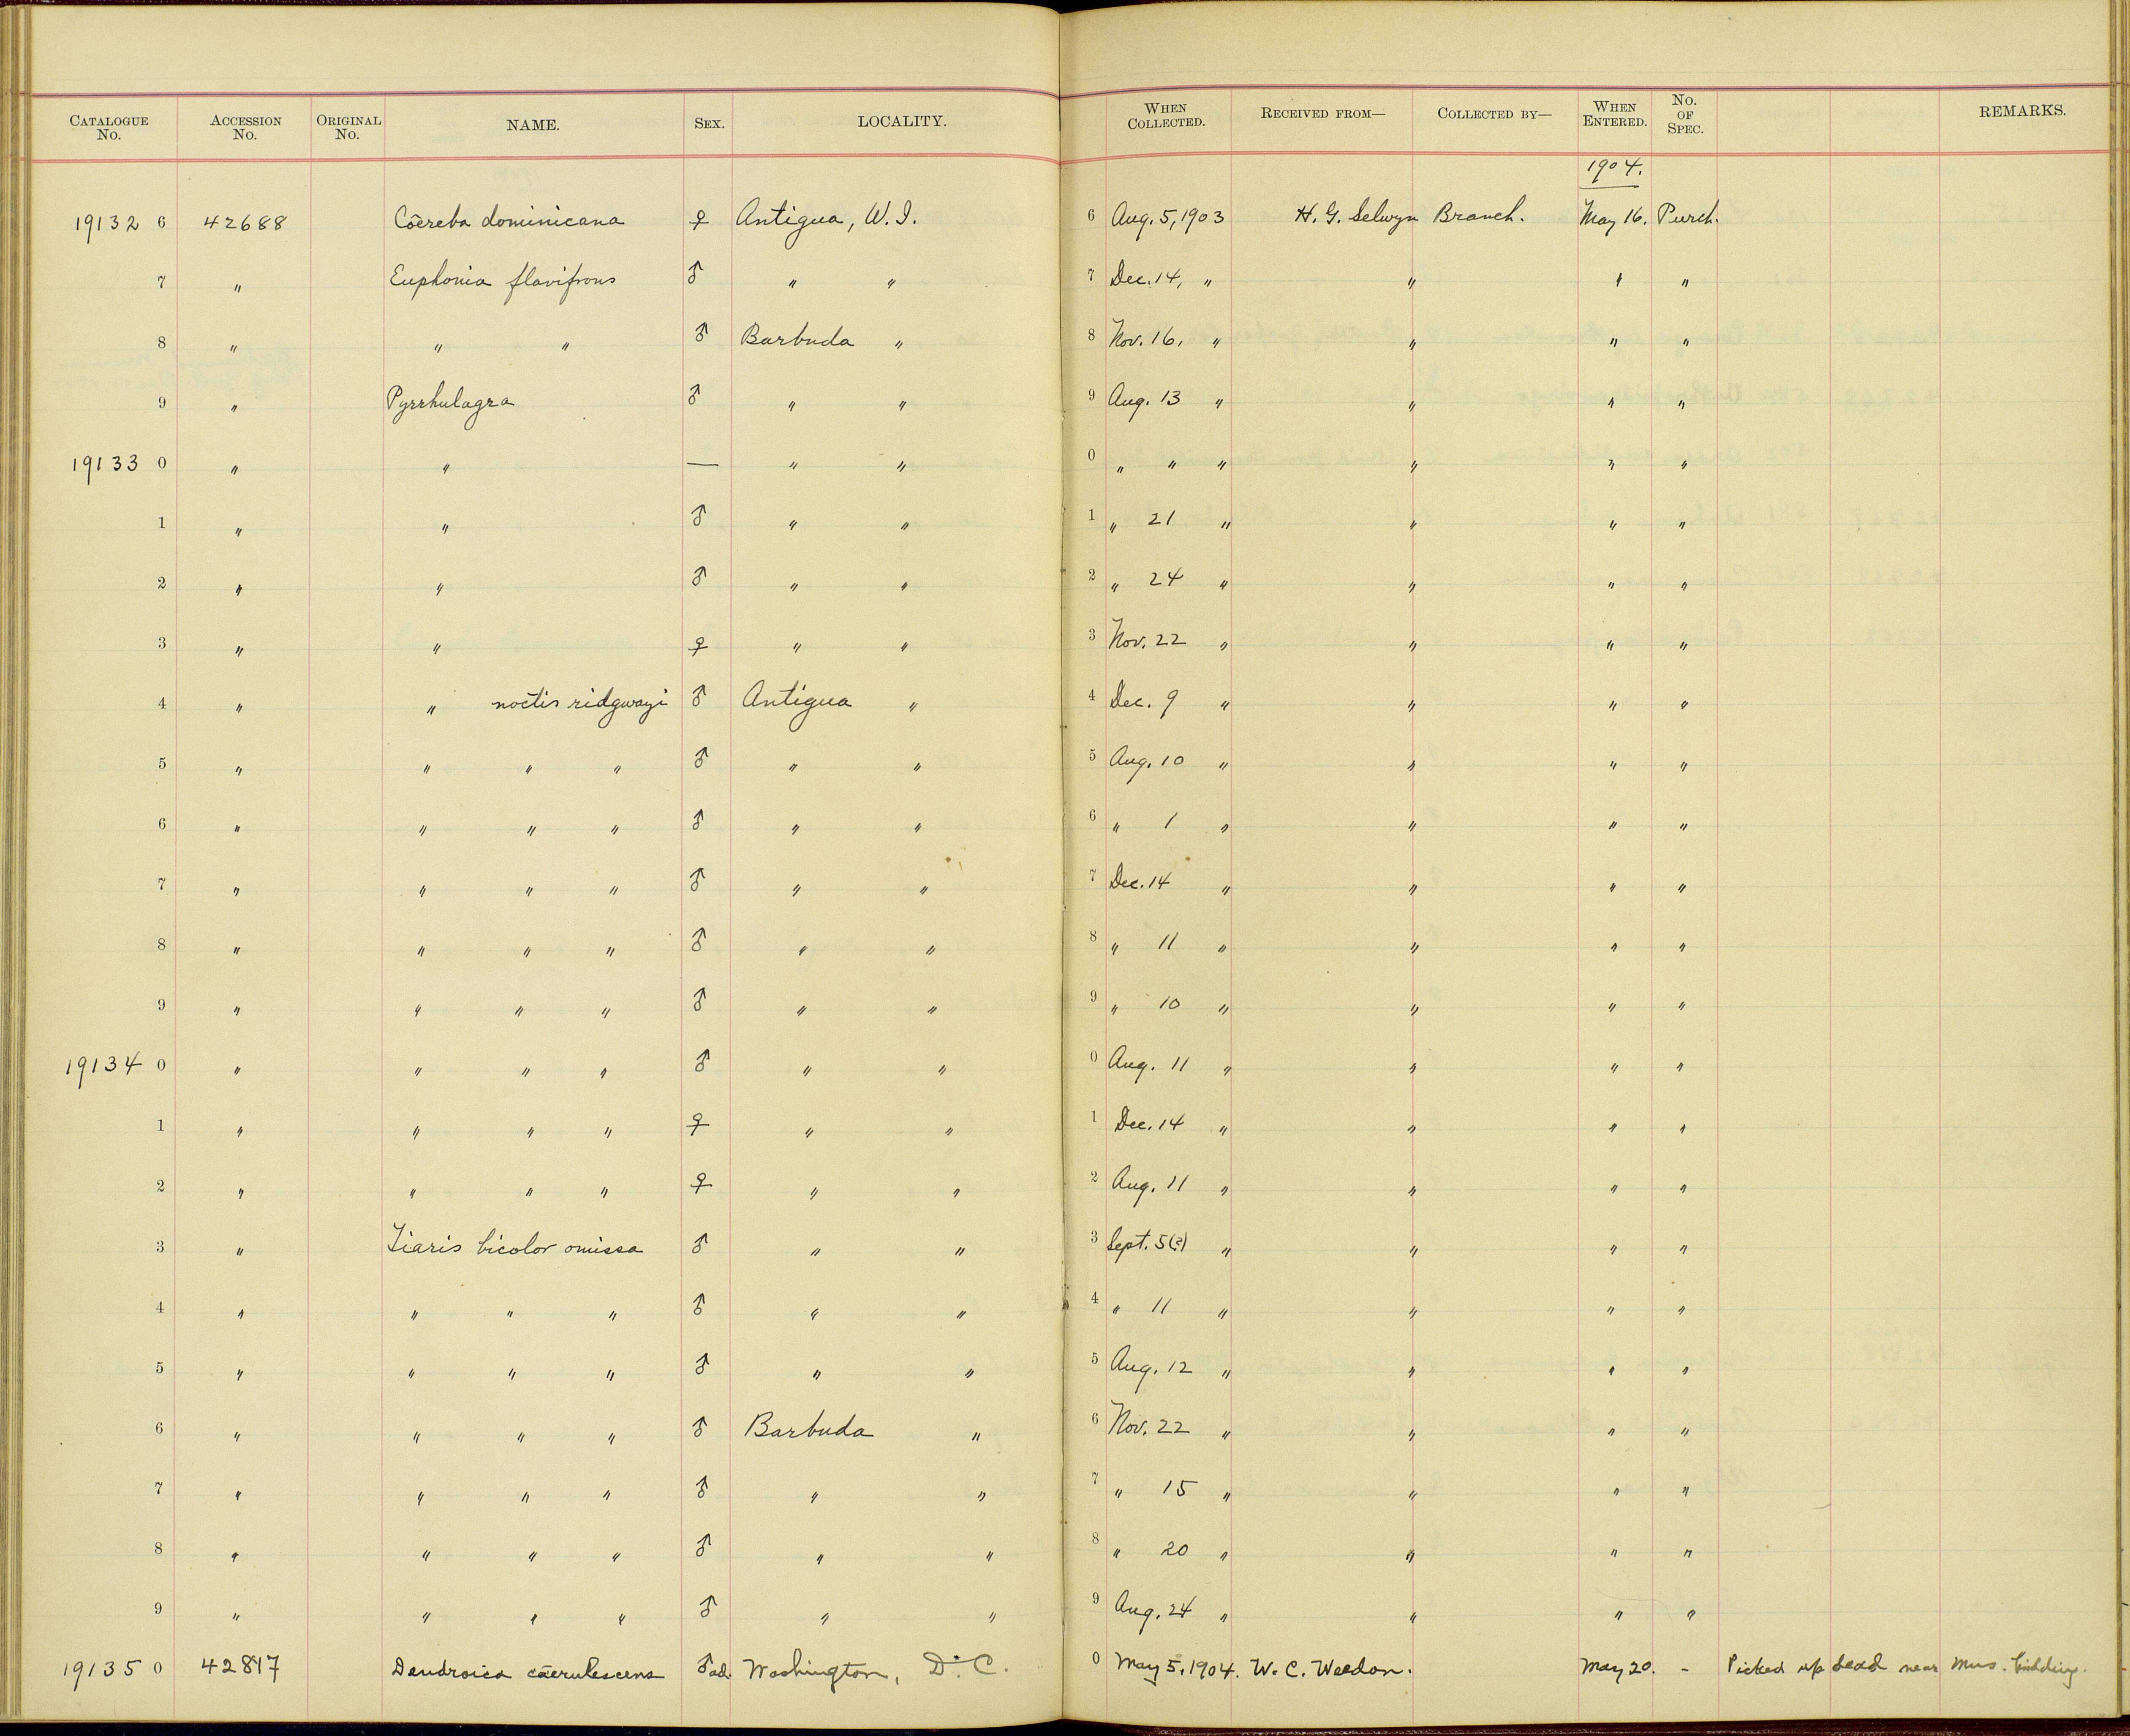 CATALOGUE No. ACCESSION No. ORIGINAL No. NAME. SEX. LOCALITY. WHEN COLLECTED. RECEIVED FROM— COLLECTED BY— WHEN ENTERED. No. OF SPEC. REMARKS.
1904.
19132 6 42688 Cōereba dominicana ♀ Antigua, W. I. 6 Aug. 5, 1903 H. G. Selwyn Branch. May 16. Purch.
7 " Euphonia flavifrons ♂ " " 7 Dec. 14, " " " "
8 " " " ♂ Barbuda " 8 Nov. 16, " " " "
9 " Pyrrhulagra ♂ " " 9 Aug. 13 " " " "
19133 0 " " — " " 0 " " " " " "
1 " " ♂ " " 1 " 21 " " " "
2 " " ♂ " " 2 " 24 " " " "
3 " " ♀ " " 3 Nov. 22 " " " "
4 " " noctis ridgwayi ♂ Antigua " 4 Dec. 9 " " " "
5 " " " " ♂ " " 5 Aug. 10 " " " "
6 " " " " ♂ " " 6 " 1 " " " "
7 " " " " ♂ " " 7 Dec. 14 " " " "
8 " " " " ♂ " " 8 " 11 " " " "
9 " " " " ♂ " " 9 " 10 " " " "
19134 0 " " " " ♂ " " 0 Aug. 11 " " " "
1 " " " " ♀ " " 1 Dec. 14 " " " "
2 " " " " ♀ " " 2 Aug. 11 " " " "
3 " Tiaris bicolor omissa ♂ " " 3 Sept. 5(?) " " " "
4 " " " " ♂ " " 4 " 11 " " " "
5 " " " " ♂ " " 5 Aug. 12 " " " "
6 " " " " ♂ Barbuda " 6 Nov. 22 " " " "
7 " " " " ♂ " " 7 " 15 " " " "
8 " " " " ♂ " " 8 " 20 " " " "
9 " " " " ♂ " " 9 Aug. 24 " " " "
19135 0 42817 Dendroica cāerulescens ♂ad. Washington, D. C. 0 May 5, 1904. W. C. Weedon. May 20. - Picked up dead near Mus. building.